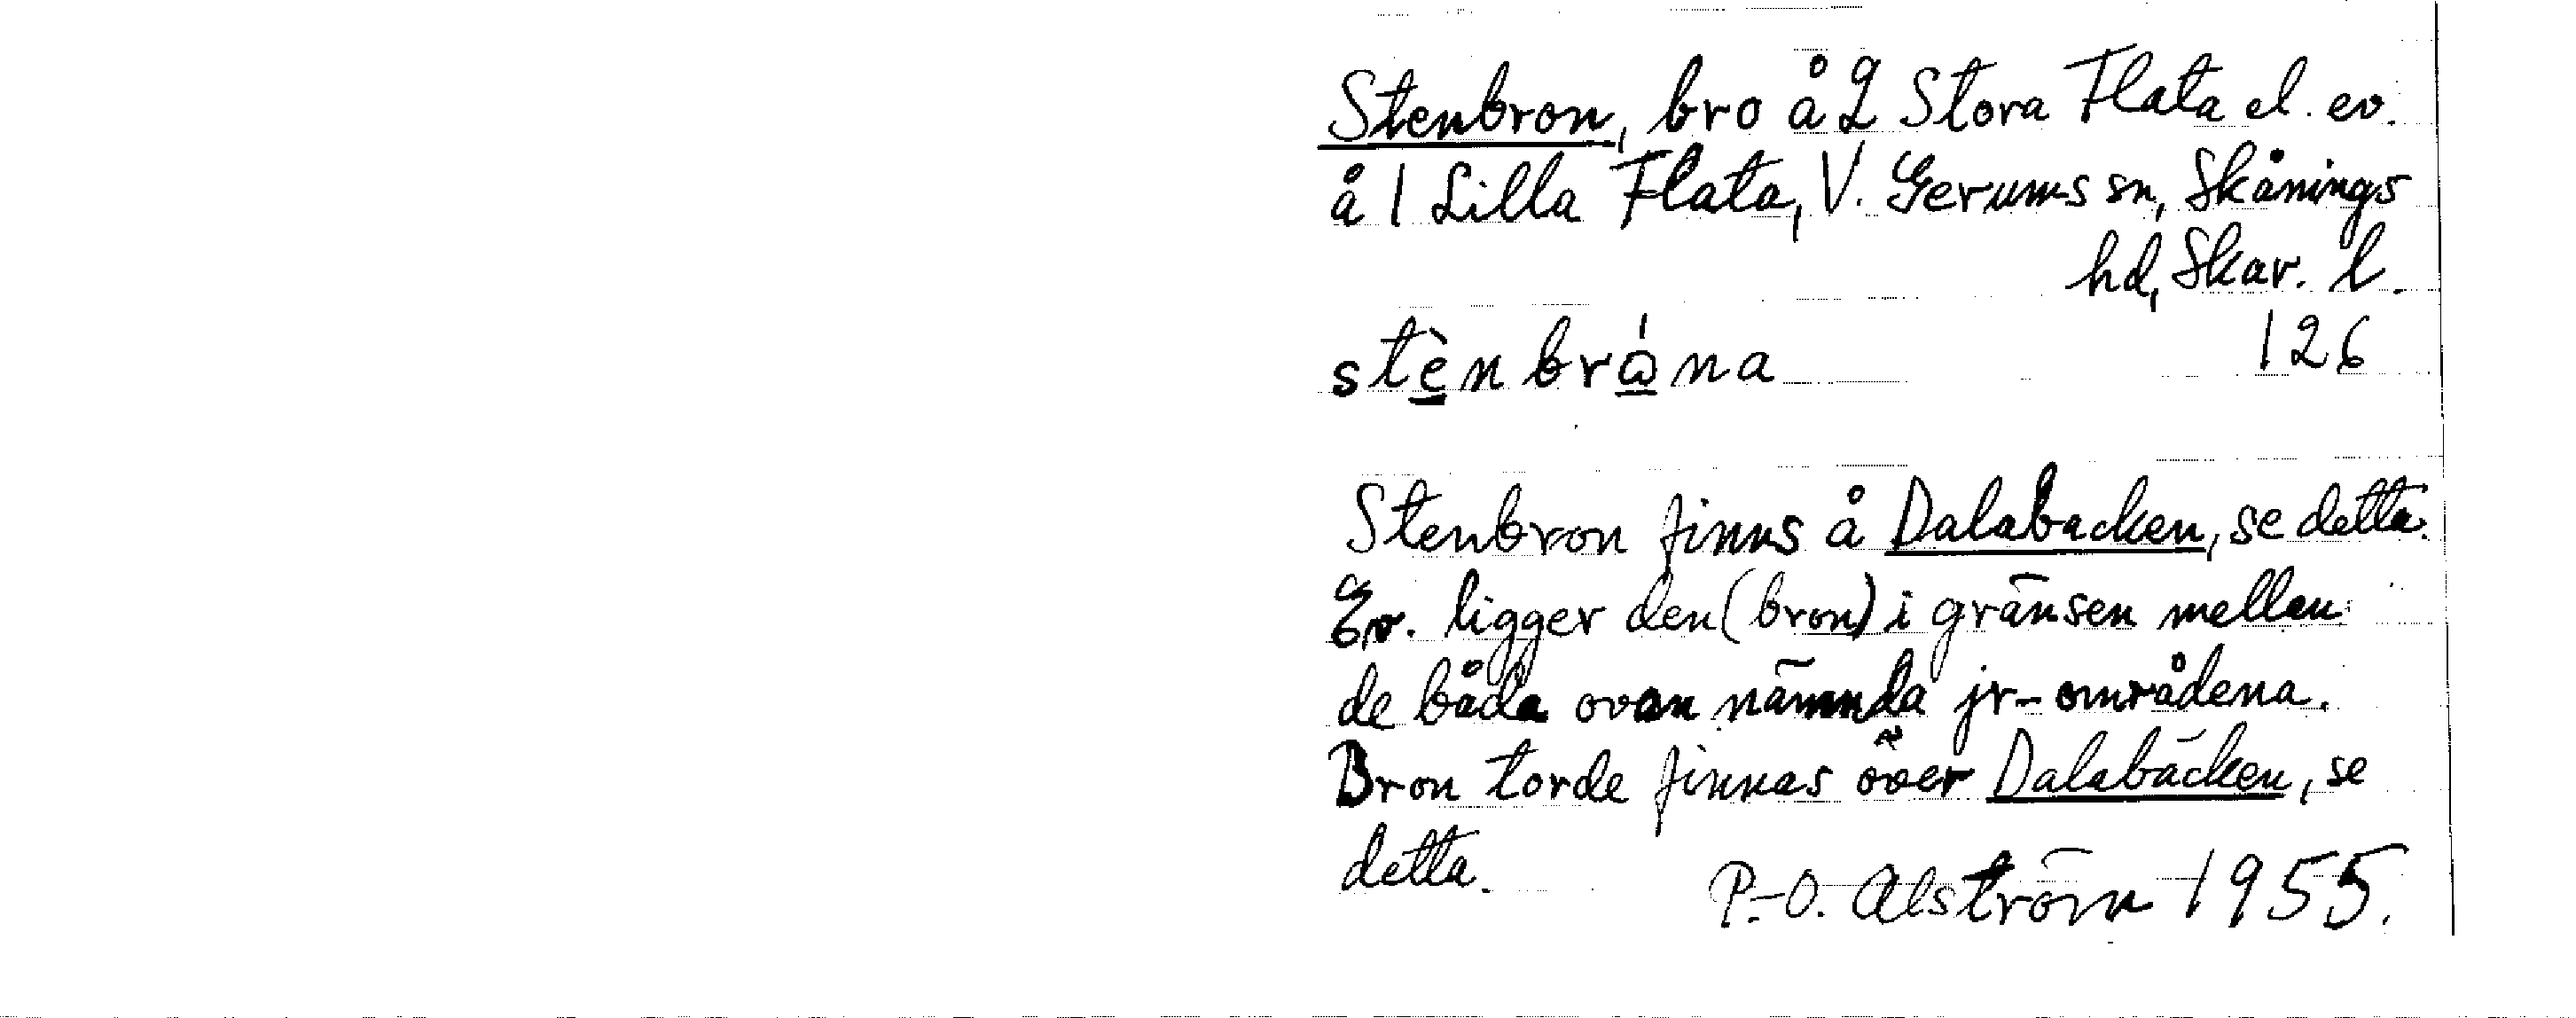 Stenbron, bro å 2 Stora Flata el. ev.
å 1 Lilla Flata, V. Gerums sn, Skånings
hd, Skar. l.
stè̠nbrώ̠na 126
Stenbron finns å Dalabacken, se detta.
Ev. ligger den (bron) i gränsen mellan
de båda ovan nämnda jr-områdena.
Bron torde finnas över Dalabäcken, se
detta. P.-O. Alström 1955.